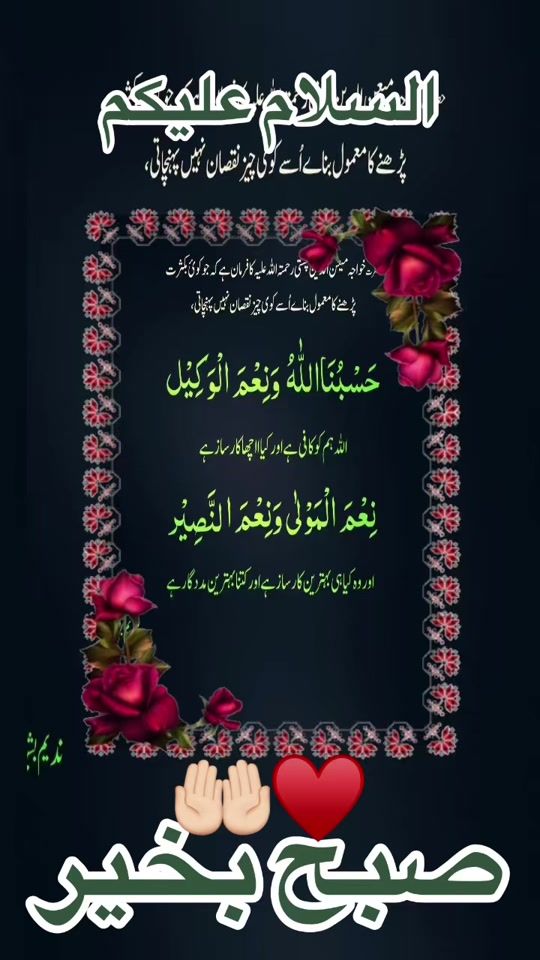 السلام علیکم
پڑھنے کا معمول بنائے اُسے کوئی چیز نقصان نہیں پہنچاتی،
خواجہ معین الدین چشتی رحمتہ اللہ علیہ کا فرمان ہے کہ جو کوئی بکثرت
پڑھنے کا معمول بنائے اُسے کوئی چیز نقصان نہیں پہنچاتی،
حَسْبُنَا اللّٰهُ وَنِعْمَ الْوَكِيْل
اللہ ہم کو کافی ہے اور کیا اچھا کارساز ہے
نِعْمَ الْمَوْلٰى وَنِعْمَ النَّصِيْر
اور وہ کیا ہی بہترین کارساز ہے اور کتنا بہترین مددگار ہے
ندیم
صبح بخیر